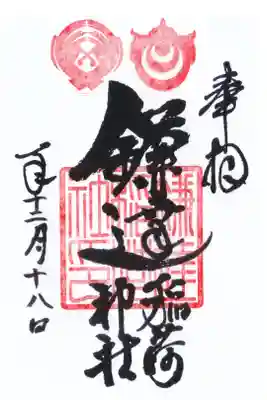 奉拝
鎌達稲荷神社
年十二月十八日